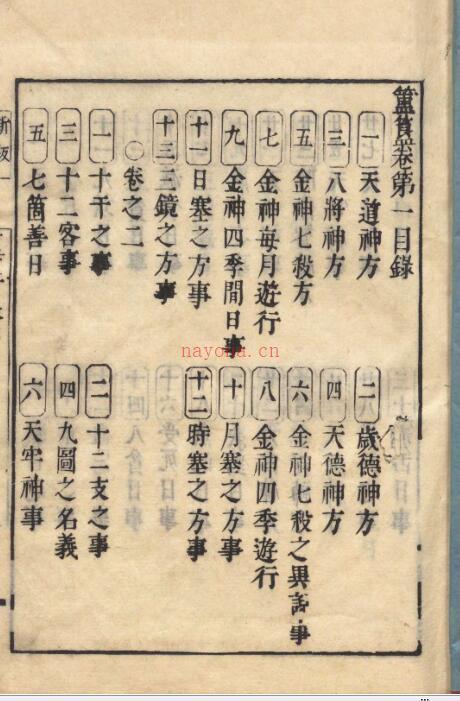 簠簋卷第一目錄
一 天道神方 二 歲德神方
三 八將神方 四 天德神方
五 金神七殺方 六 金神七殺之異說事
七 金神每月遊行 八 金神四季遊行
九 金神四季間日事 十 月塞之方事
十一 日塞之方事 十二 時塞之方事
十三 三鏡之方事
○卷之二
一 十干之事 二 十二支之事
三 十二客事 四 九圖之名義
五 七箇善日 六 天牢神事
nayona.cn